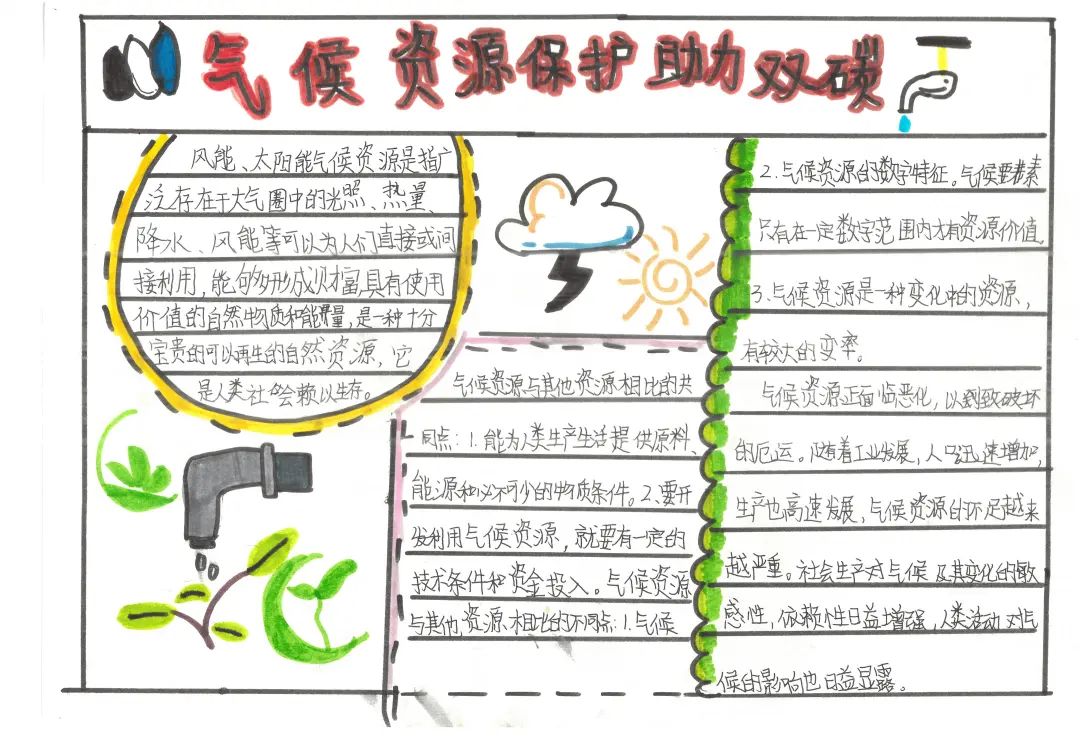 气候资源保护助力双碳
风能、太阳能气候资源是指广
泛存在于大气圈中的光照、热量、
降水、风能等可以为人们直接或间
接利用,能够形成财富具有使用
价值的自然物质和能量,是一种十分
宝贵的可以再生的自然资源,它
是人类社会赖以生存。
气候资源与其他资源相比的共
同点:1.能为人类生产生活提供原料、
能源和必不可少的物质条件。2.要开
发利用气候资源,就要有一定的
技术条件和资金投入。气候资源
与其他资源相比的不同点:1.气候
2.气候资源的数字特征。气候要素
只有在一定数字范围内才有资源价值
3.气候资源是一种变化中的资源,
有较大的变率。
气候资源正面临恶化,以到致破坏
的厄运。随着工业发展,人口迅速增加,
生产也高速发展,气候资源的不足越来
越严重。社会生产对气候及其变化的敏
感性,依赖性日益增强,人类活动对气
候的影响也日益显露。